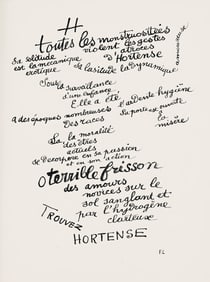 H
toutes les monstruositées
violent les gestes
atroces
d'Hortense
Sa solitude
est la mecanique
erotique
Sa lassitude la dynamique
amoureuse
Sous la
surveillance
d'une enfance
Elle a été
a des époques nombreuses
l'ardente hygiene
Des races
Sa porte est ouverte
a la
misère
La la moralité
des êtres
actuels
se decorpore en sa passion
ou en son action
O terrible frisson
des amours
novices sur le
sol sanglant et
par l'hydrogène
clarteux
TROUVEZ
HORTENSE
F L